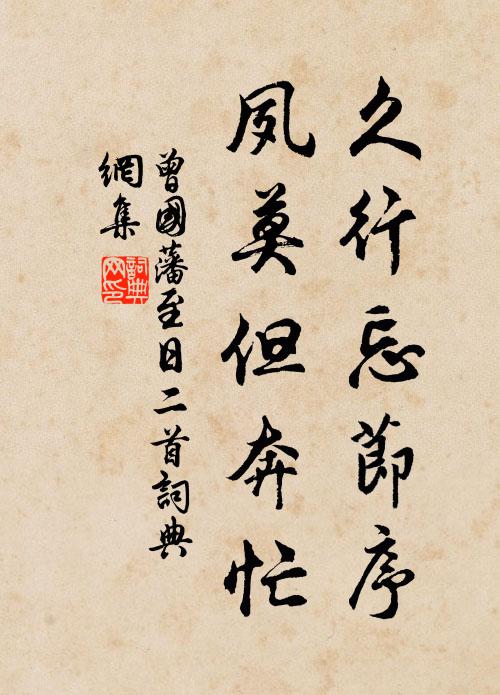 久行忘節序
夙莫但奔忙
曾國藩至日二首詞典
網集
詞典
网印